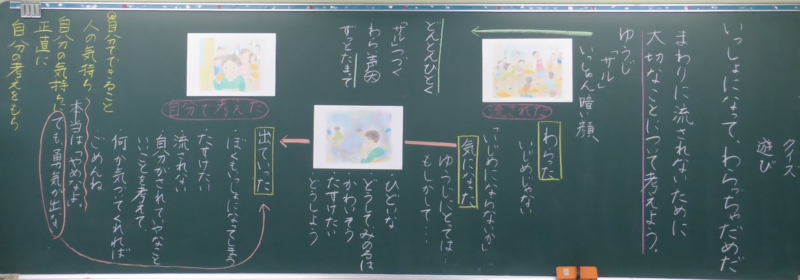 クイズ
遊び
いっしょになって、わらっちゃだめだ
まわりに流されないために
大切なことについて考えよう。
ゆうじ
「サル」
いちばん暗い顔
どんどんひどく
「サル」つづく
わらい
ずっとだまって
流された
わらった
いじめじゃない
「いじめにならないか」
気になった
ゆうじにとっては…
もしかして…
ひどいな
どうしてみのるは
かわいそう
たすけたい
どうしよう
自分で考えた
出ていった
・ぼくもいっしょになってしまう
・たすけたい
流されない
自分がされていやなこと
いじめを考えて、
何か気づいてくれれば
ごめんね
本当は「やめなよ」
でも、勇気が出ない
自分でできること
人の気持ち
自分の気持ちに
正直に
自分の考えをもち